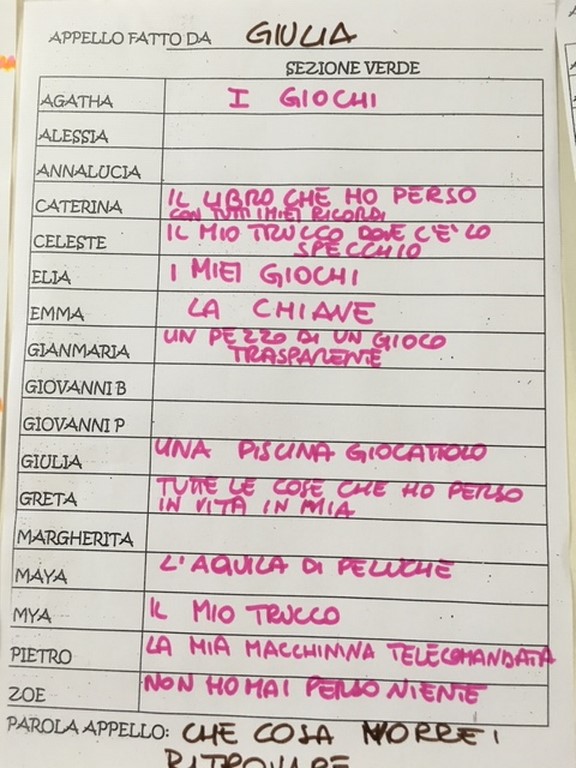 APPELLO FATTO DA GIULIA
SEZIONE VERDE
AGATHA I GIOCHI
ALESSIA
ANNALUCIA
CATERINA IL LIBRO CHE HO PERSO
CON TUTTI I MIEI RICORDI
CELESTE IL MIO TRUCCO DOVE C'E' LO
SPECCHIO
ELIA I MIEI GIOCHI
EMMA LA CHIAVE
GIANMARIA UN PEZZO DI UN GIOCO
TRASPARENTE
GIOVANNI B
GIOVANNI P
GIULIA UNA PISCINA GIOCATTOLO
GRETA TUTTE LE COSE CHE HO PERSO
IN VITA IN MIA
MARGHERITA
MAYA L'AQUILA DI PELUCHE
MYA IL MIO TRUCCO
PIETRO LA MIA MACCHININA TELECOMANDATA
ZOE NON HO MAI PERSO NIENTE
PAROLA APPELLO: CHE COSA VORREI
RITROVARE